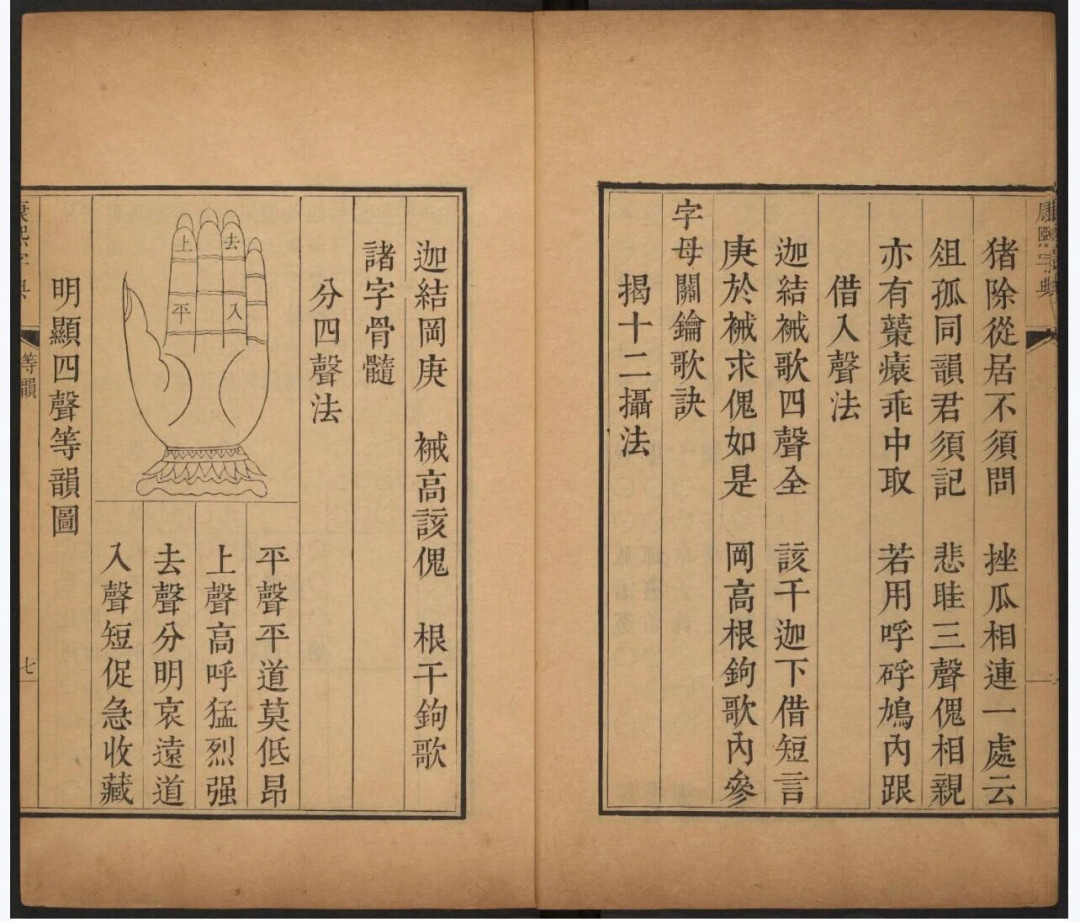 康熙字典
猪除從居不須問 挫瓜相連一處云
俎孤同韻君須記 悲眭三聲傀相親
亦有蒅瘝乖中取 若用呼硣鳩內跟
借入聲法
迦結裓歌四聲全 該干迦下借短言
庚於裓求傀如是 岡高根鉤歌內參
字母關鑰歌訣
揭十二攝法
迦結岡庚 裓高該傀 根干鉤歌
諸字骨髓
分四聲法
上
去
平
入
平聲平道莫低昂
上聲高呼猛烈强
去聲分明哀遠道
入聲短促急收藏
明顯四聲等韻圖
康熙字典
等韻
七